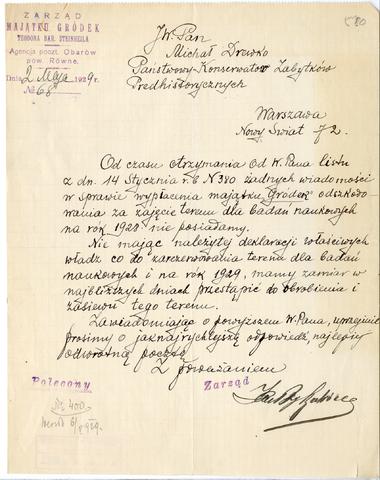 580
ZARZĄD
MAJĄTKU GRÓDEK
TEODORA BAR. STEINHEILA
Agencja poczt. Obarów
pow. Równe.
Dnia 2 Maja 1929 r.
№ 68
JW. Pan
Michał Drewko
Państwowy Konserwator Zabytków
Predhistorycznych
Warszawa
Nowy Świat 72.
Od czasu otrzymania od W. Pana listu
z dn. 14 Stycznia r. b N 380 żadnych wiadomości
w sprawie wypłacenia majątku „Gródek" odszkodo-
wania za zajęcie terenu dla badań naukowych
na rok 1928 nie posiadamy.
Nie mając należytej deklaracji właściwych
władz co do zarezerwowania terena dla badań
naukowych i na rok 1929, mamy zamiar w
najbliższych dniach przestąpić do obrobienia i
zasiewu tego terenu.
Zawiadomiając o powyższem W. Pana, uprzejmie
prosimy o jaknajrychlejszą odpowiedź, najlepiej
odwrotną pocztą
Z poważaniem
Polecony
Zarząd
400
1929.